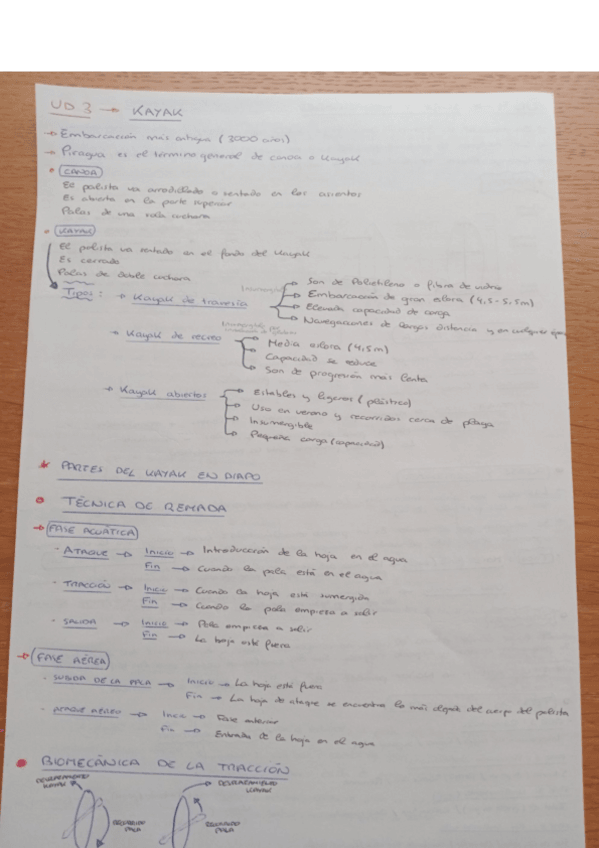 UD 3 → KAYAK
→ Embarcación más antigua (3000 años)
→ Piragua es el termino general de canoa o Kayak
• CANOA
El palista va arrodillado o sentado en los asientos
Es abierta en la parte superior
Palas de una sola cuchara
• KAYAK
El palista va sentado en el fondo del Kayak
Es cerrado
Palas de doble cuchara
Tipos: → Kayak de travesía
→ Son de Polietileno o fibra de vidrio
→ Embarcación de gran eslora (4,5 - 5,5m)
→ Elevada capacidad de carga
→ Navegaciones de largas distancia y en cualquier
→ Kayak de recreo
→ Media eslora (4,5m)
→ Capacidad se reduce
→ Son de progresión más lenta
→ Kayak abiertos
→ Estables y ligeros (plástico)
→ Uso en verano y recorridos cerca de playa
→ Insumergible
→ Pequeña carga (capacidad)
* PARTES DEL KAYAK EN DIAPO
• TÉCNICA DE REMADA
→ FASE ACUÁTICA
· ATAQUE → Inicio → Introducción de la hoja en el agua
Fin → Cuando la pala está en el agua
· TRACCIÓN → Inicio → Cuando la hoja está sumergida
Fin → Cuando la pala empieza a salir
· SALIDA → Inicio → Pala empieza a salir
Fin → La hoja esté fuera
→ FASE AÉREA
· SUBIDA DE LA PALA → Inicio → La hoja está fuera
Fin → La hoja de ataque se encuentra lo más alejada del cuerpo del palista
· ATAQUE AÉREO → Inicio → Fase anterior
Fin → Entrada de la hoja en el agua
• BIOMECÁNICA DE LA TRACCIÓN
DESPLAZAMIENTO KAYAK
DESPLAZAMIENTO KAYAK
RECORRIDO PALA
RECORRIDO PALA